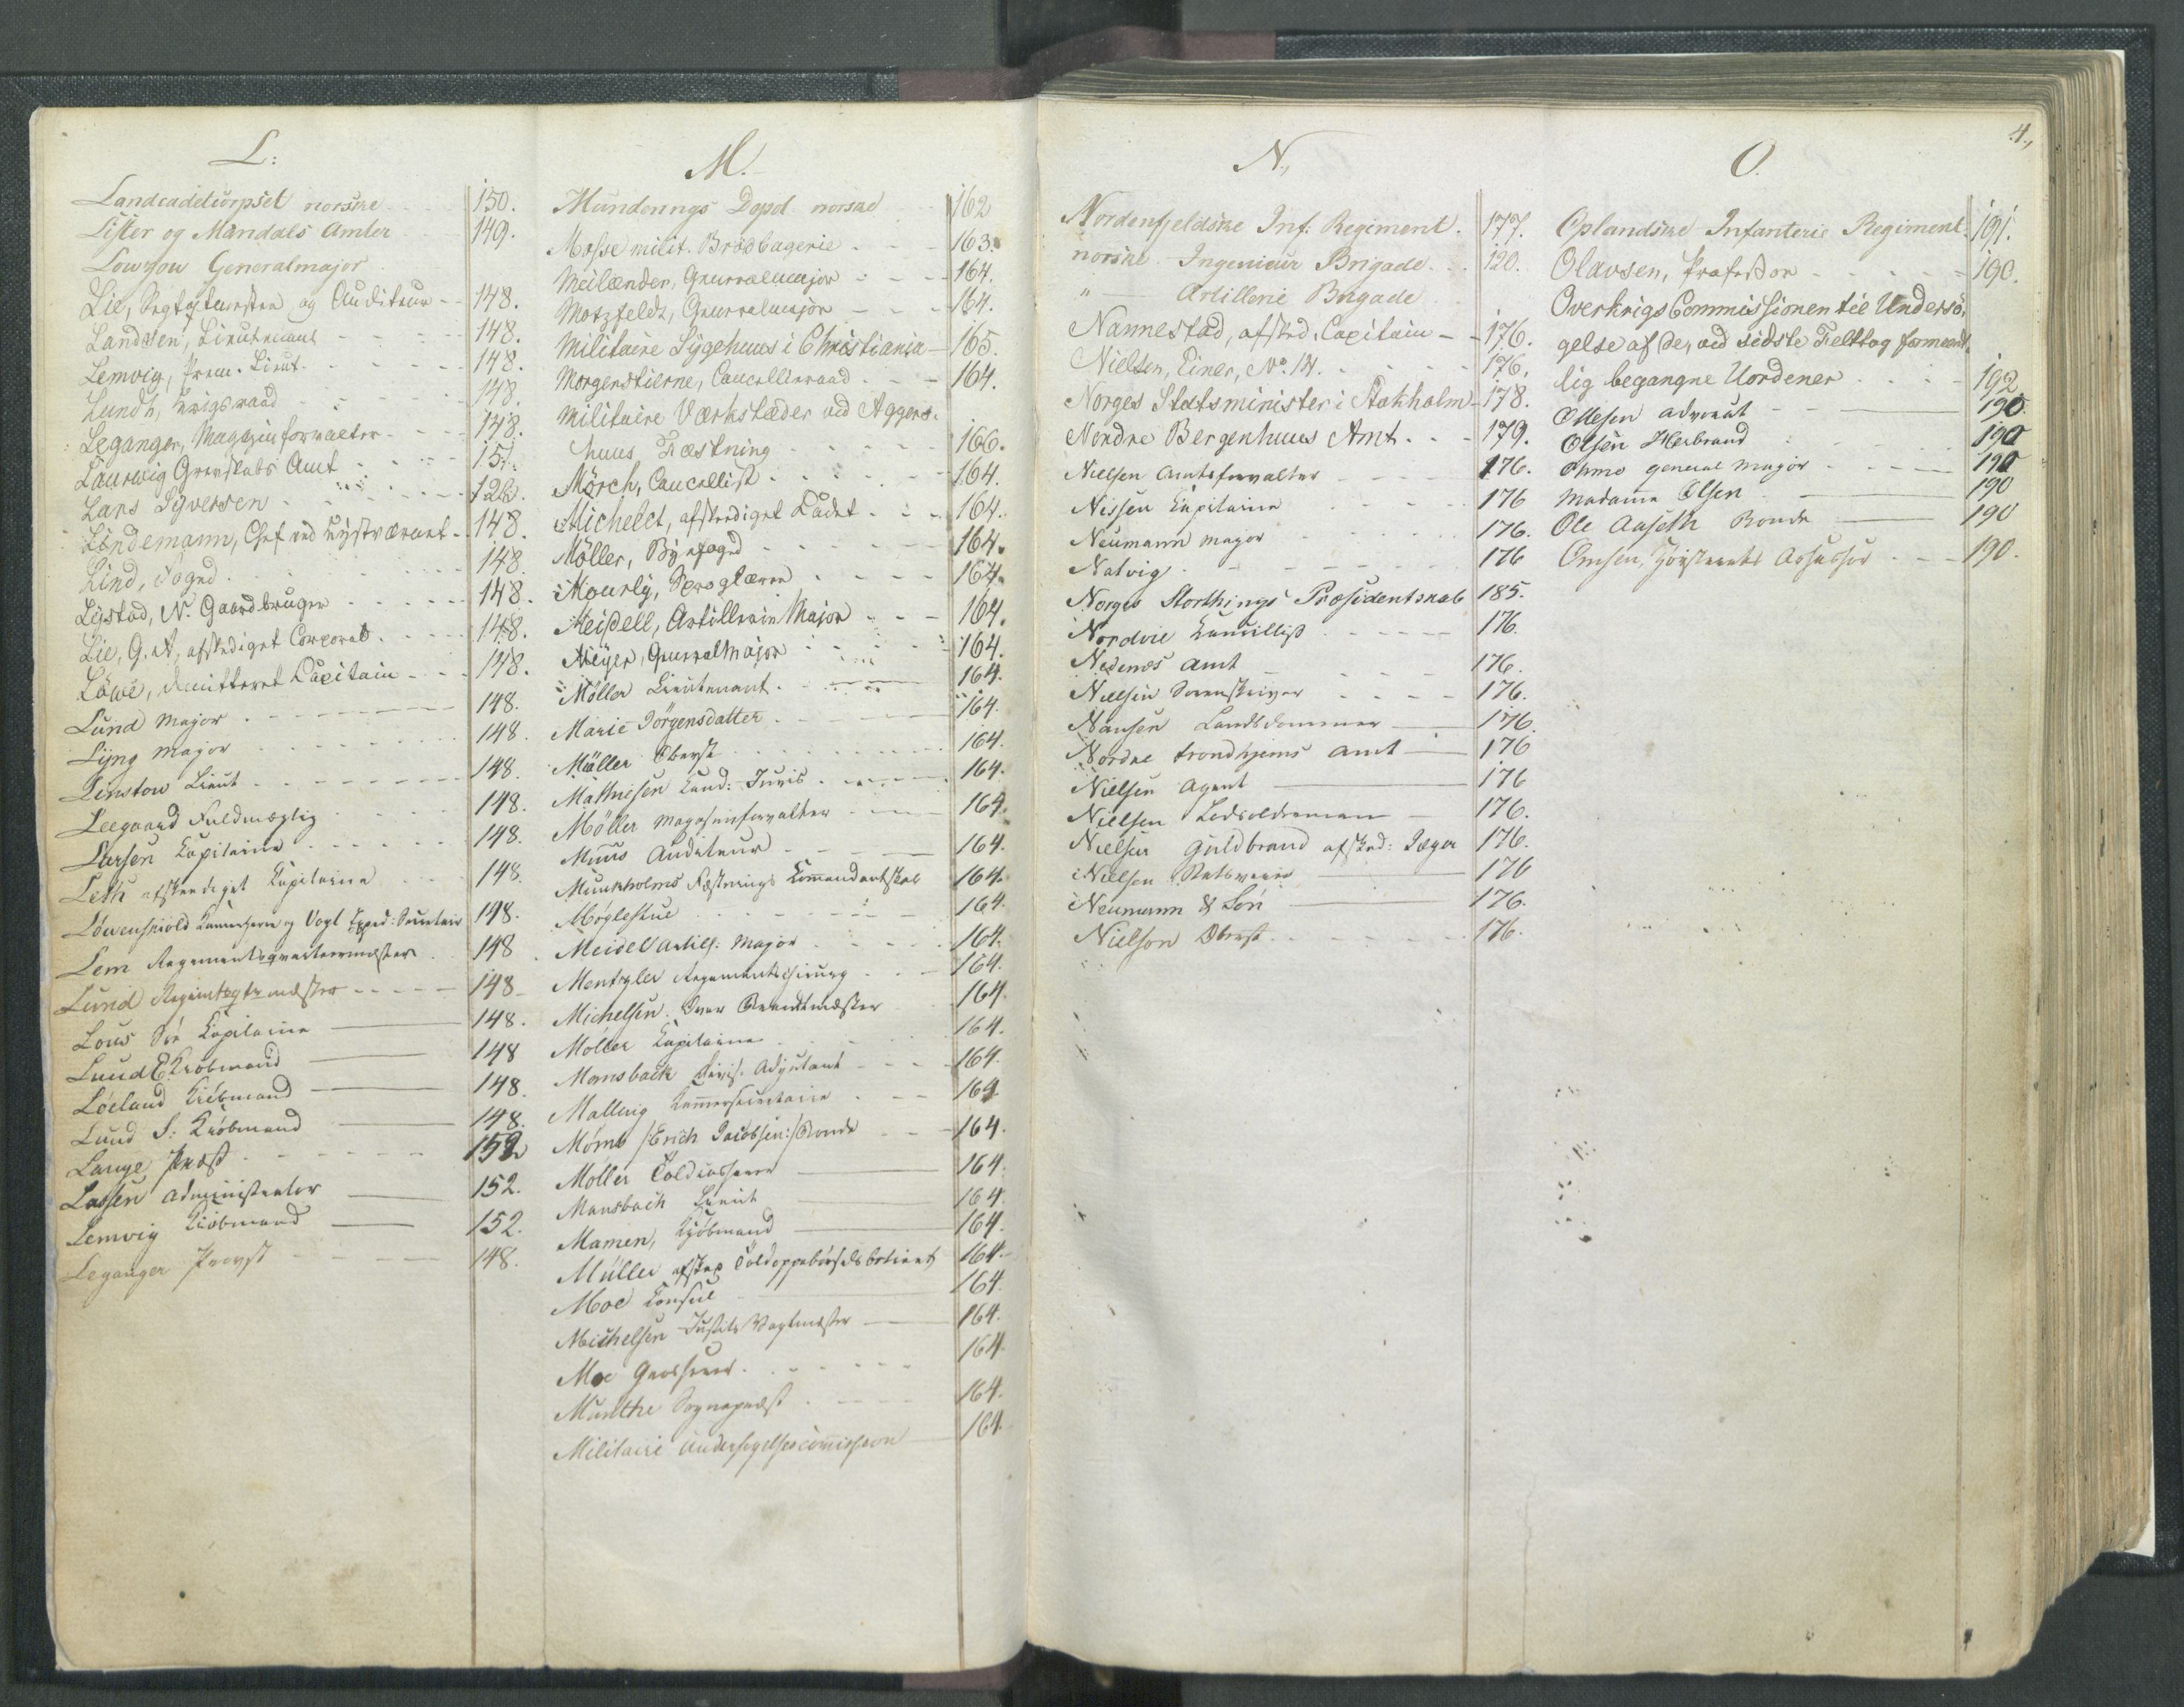 L:
Landcadetcorpset norske 150.
Lister og Mandals Amter 149.
Lowzow Generalmajor
Lie, og Auditeur 148.
Landsen, Lieutenant 148.
Lemvig, Prem. Lieut. 148.
Lundh, Krigsraad 148.
Leganger, Magazinforvalter 148.
Laurwig Grevskabs Amt 151.
Lars Syversen 128.
Lindemann, Chef ved Kystværnet 148.
Lind, Foged 148.
Lystad, N. Gaardbruger 148.
Lie, G. A. afskediget Corporal 148.
Löwe, demitteret Capitain 148.
Lund Major 148.
Ljyng Major 148.
Linstow Lieut 148.
Leegaard Fuldmægtig 148.
Larsen Kapitaine 148.
Leth afskeediget Kapitaine 148.
Löwenskiold Kammerherre og Vogt Exped: Secretair 148.
Lem Regimentsqvarteermester 148
Lund 148
Lous Sö Kapitaine 148.
Luud E. Kiöbmand 148
Löeland Kiöbmand 148.
Lund S: Kiöbmand 148.
Lange Præst 152
Lassen Administrator 152.
Lemvig Kiöbmand 152.
Leganger Provst 148.
M.
Munderings Depot norske 162
Mosse milit. Brödbagerie 163.
Meilænder, Generalmajor 164.
Motzfeldt, Generalmajor 164.
Militaire Sygehuus i Christiania 165.
Morgenstierne, Cancellieraad 164.
Militaire Værksteder ved Aggers-
huus Fæstning 166.
Mörch, Cancellist 164.
Michelet, afskediget Cadet 164.
Möller, Byefoged 164.
Mourly, Sproglærer 164.
Meisdell, Artillerie Major 164.
Meyer, Generalmajor 164.
Möller Lieutenant 164.
Marie Jörgensdatter 164.
Müller Oberst 164.
Mathiesen Cand: Juris 164.
Möller Magasinforvalter 164.
Muus Auditeur 164.
Munkholms Fæstnings Komandantskab 164.
Möglestue 164.
Meidel Artill: Major 164.
Mentzler Regimentschirurg 164.
Michelsen Over Brandmester 164.
Möller Kapitaine 164.
Mansback Divis: Adjutant 164.
Malling Kammersecretaire 164.
Mörne /:Erich Jacobsen:/ Bonde 164.
Möller Toldcasserer 164.
Mansbach Lieut 164.
Mamen, Kjöbmand 164.
Müller afsked Toldoppebörselsbetient 164.
Moe Konsul 164.
Michelsen Justits Vagtmester 164.
Moe Grosserer 164.
Munthe Sognepræst 164.
Militaire Undersøgelsescommission 164.
N.,
Nordenfjeldske Inf: Regiment. 177.
norske Ingenieur Brigade 120.
" Artillerie Brigade
Nannestad, afsked. Capitain 176.
Nielsen, Einer, No. 14. 176.
Norges Statsminister i Stokholm 178.
Nordre Bergenhuus Amt 179.
Nielsen Amtsforvalter 176.
Nissen Kapitaine 176
Neumann Major 176.
Natvig 176
Norges Storthings Præsidentskab 185.
Nordvie Kancellist 176.
Nedenæs Amt 176.
Nielsen Sorenskriver 176.
Nansen Landsdommer 176.
Nordre Trondhjems Amt 176
Nielsen Agent 176
Nielsen 176.
Nielsen Guldbrand afsked: Jæger 176.
Nielsen 176
Neumann & Sön 176.
Nielson Oberst 176.
4.,
O.
Oplandske Infanterie Regiment. 191.
Olavsen, Professor 190.
OverkrigsCommissionen til Undersö-
gelse af de, ved sidste Felttog formeent-
lig begangne Uordener 192
Ottesen Advocat 190.
Olsen Herbrand 190
Ohme General Major 190
Madame Olsen 190
Ole Aaseth Bonde 190
Omsen, Höiesterets Assessor 190.